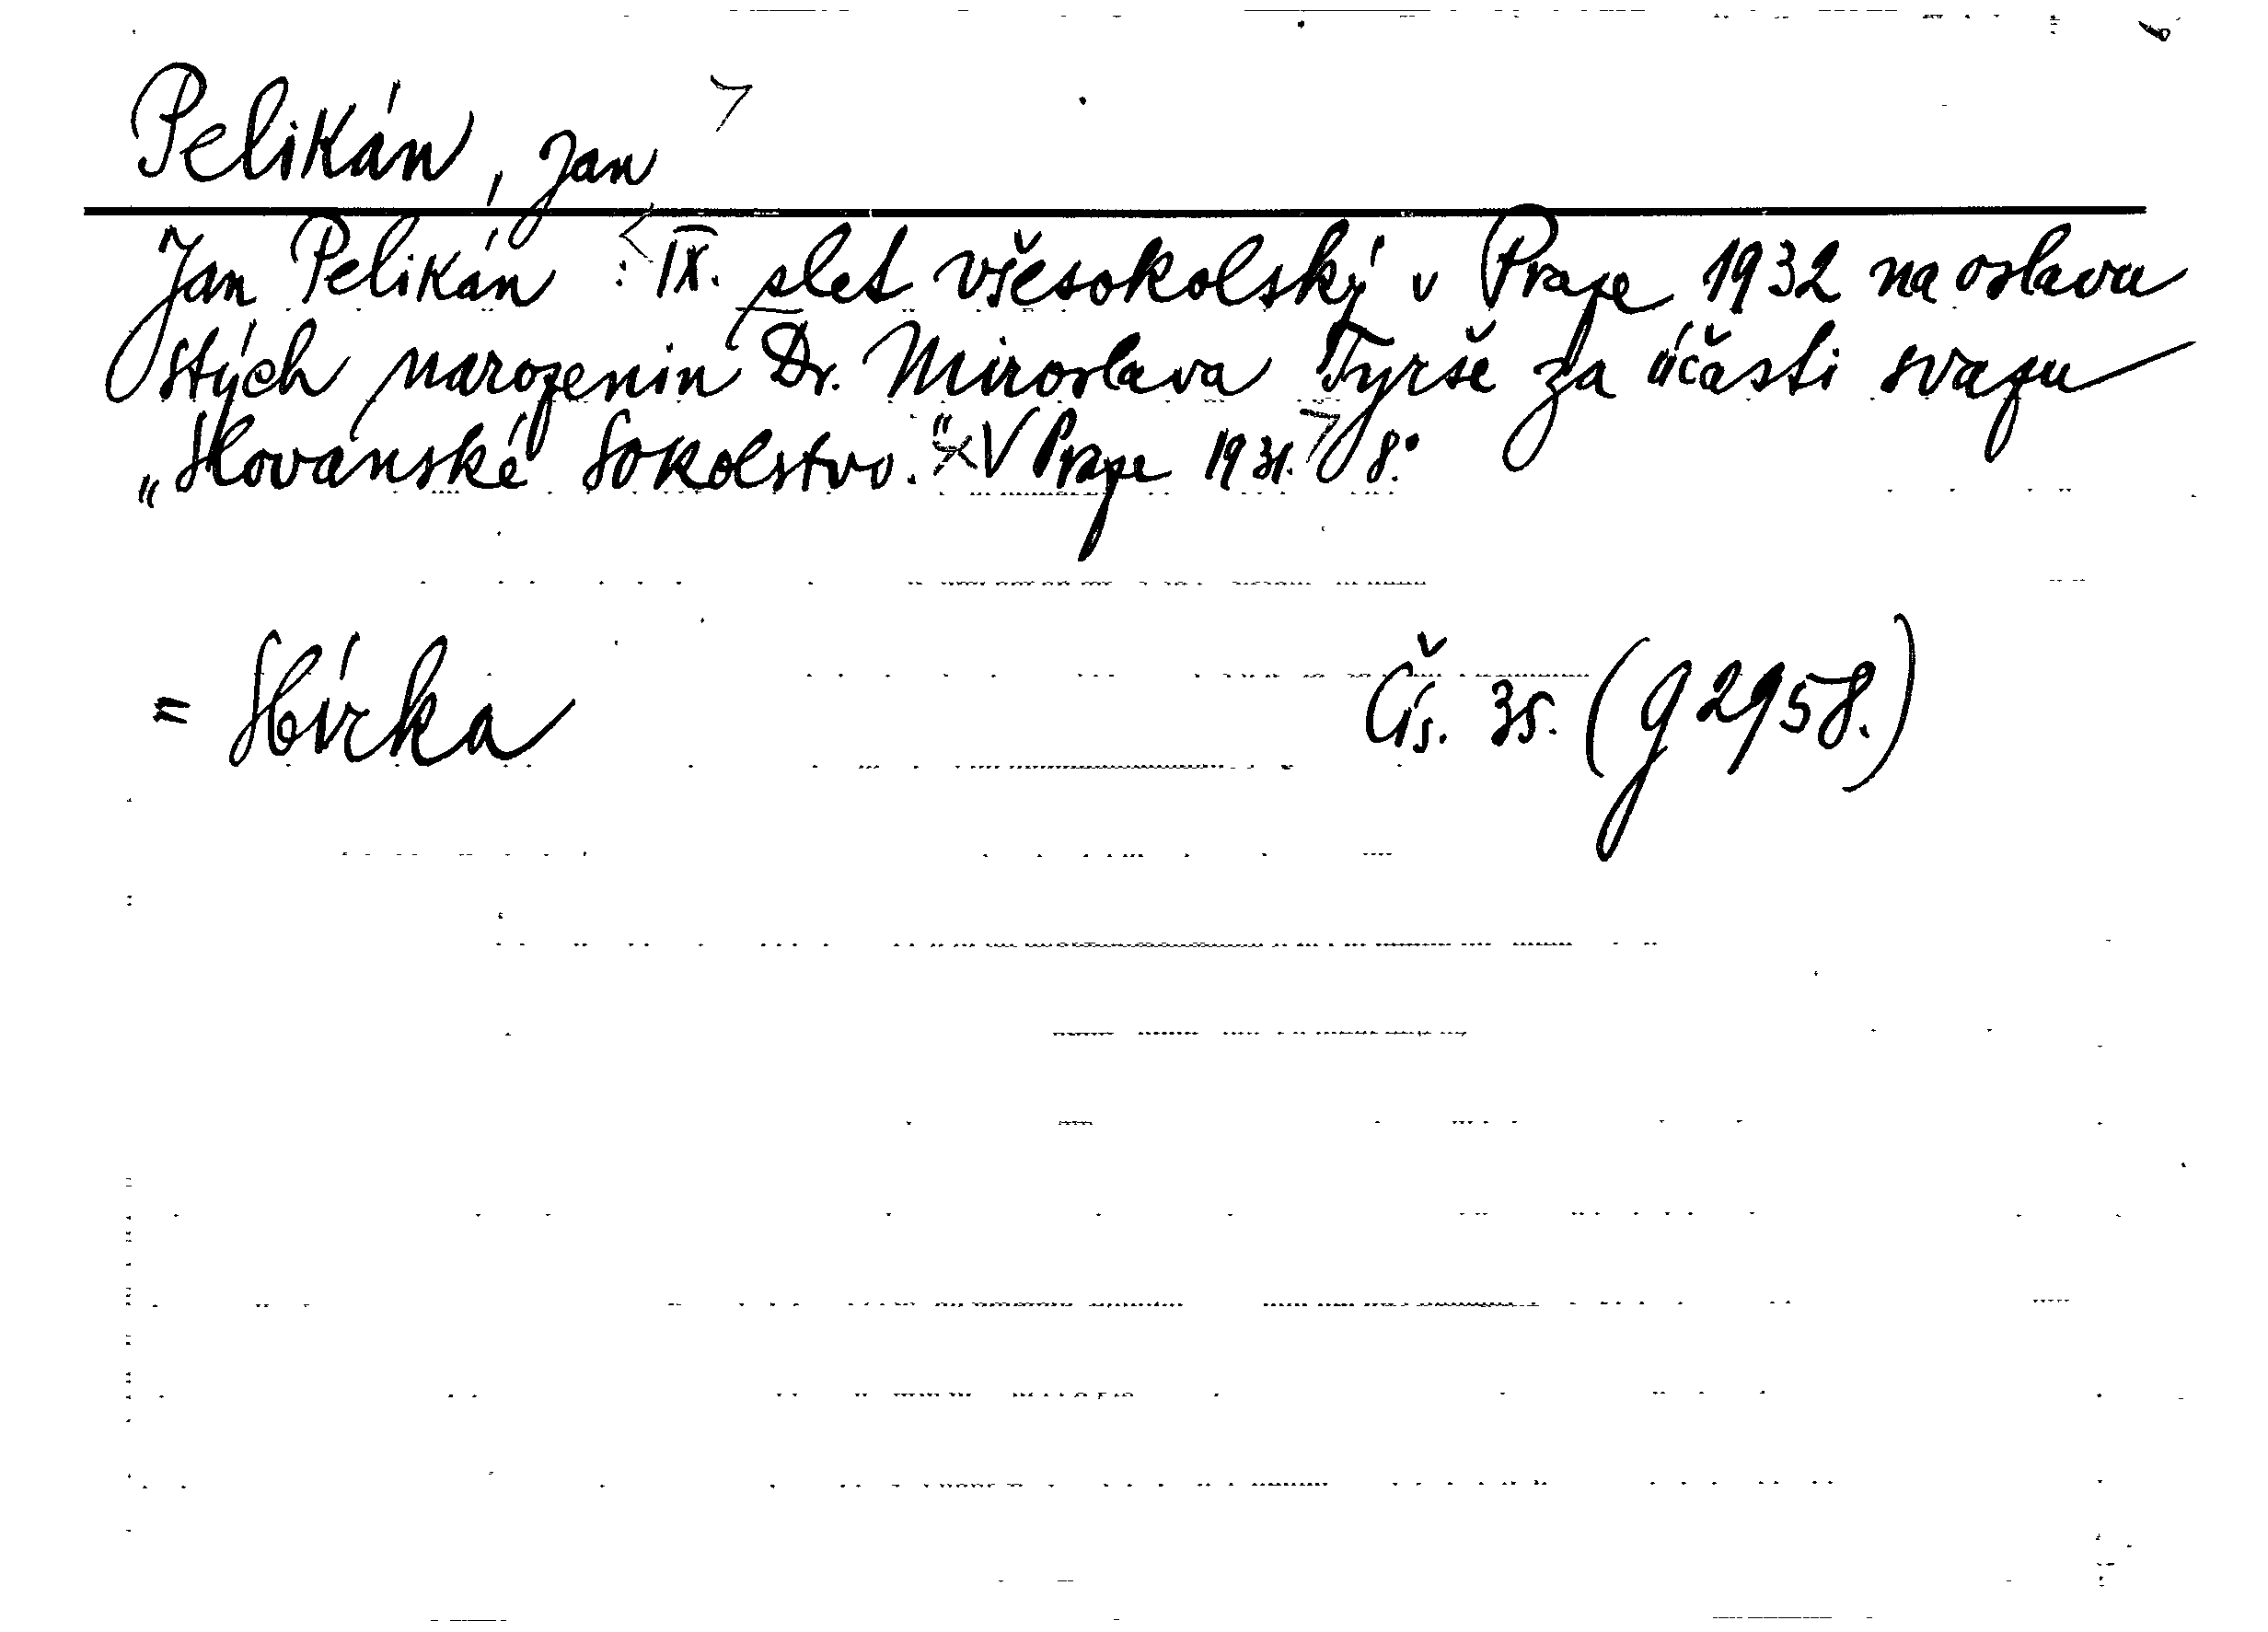 Pelikán, Jan
Jan Pelikán : IX. slet všesokolský v Praze 1932 na oslavu
stých narozenin Dr. Miroslava Tyrše za účasti svazu
„Slovanské Sokolstvo.“ V Praze 1931. 8°
= Sbírka Čís. 35. (g 2958.)